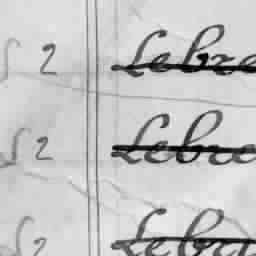 2 Lebre
2 Lebre
2 Lebre